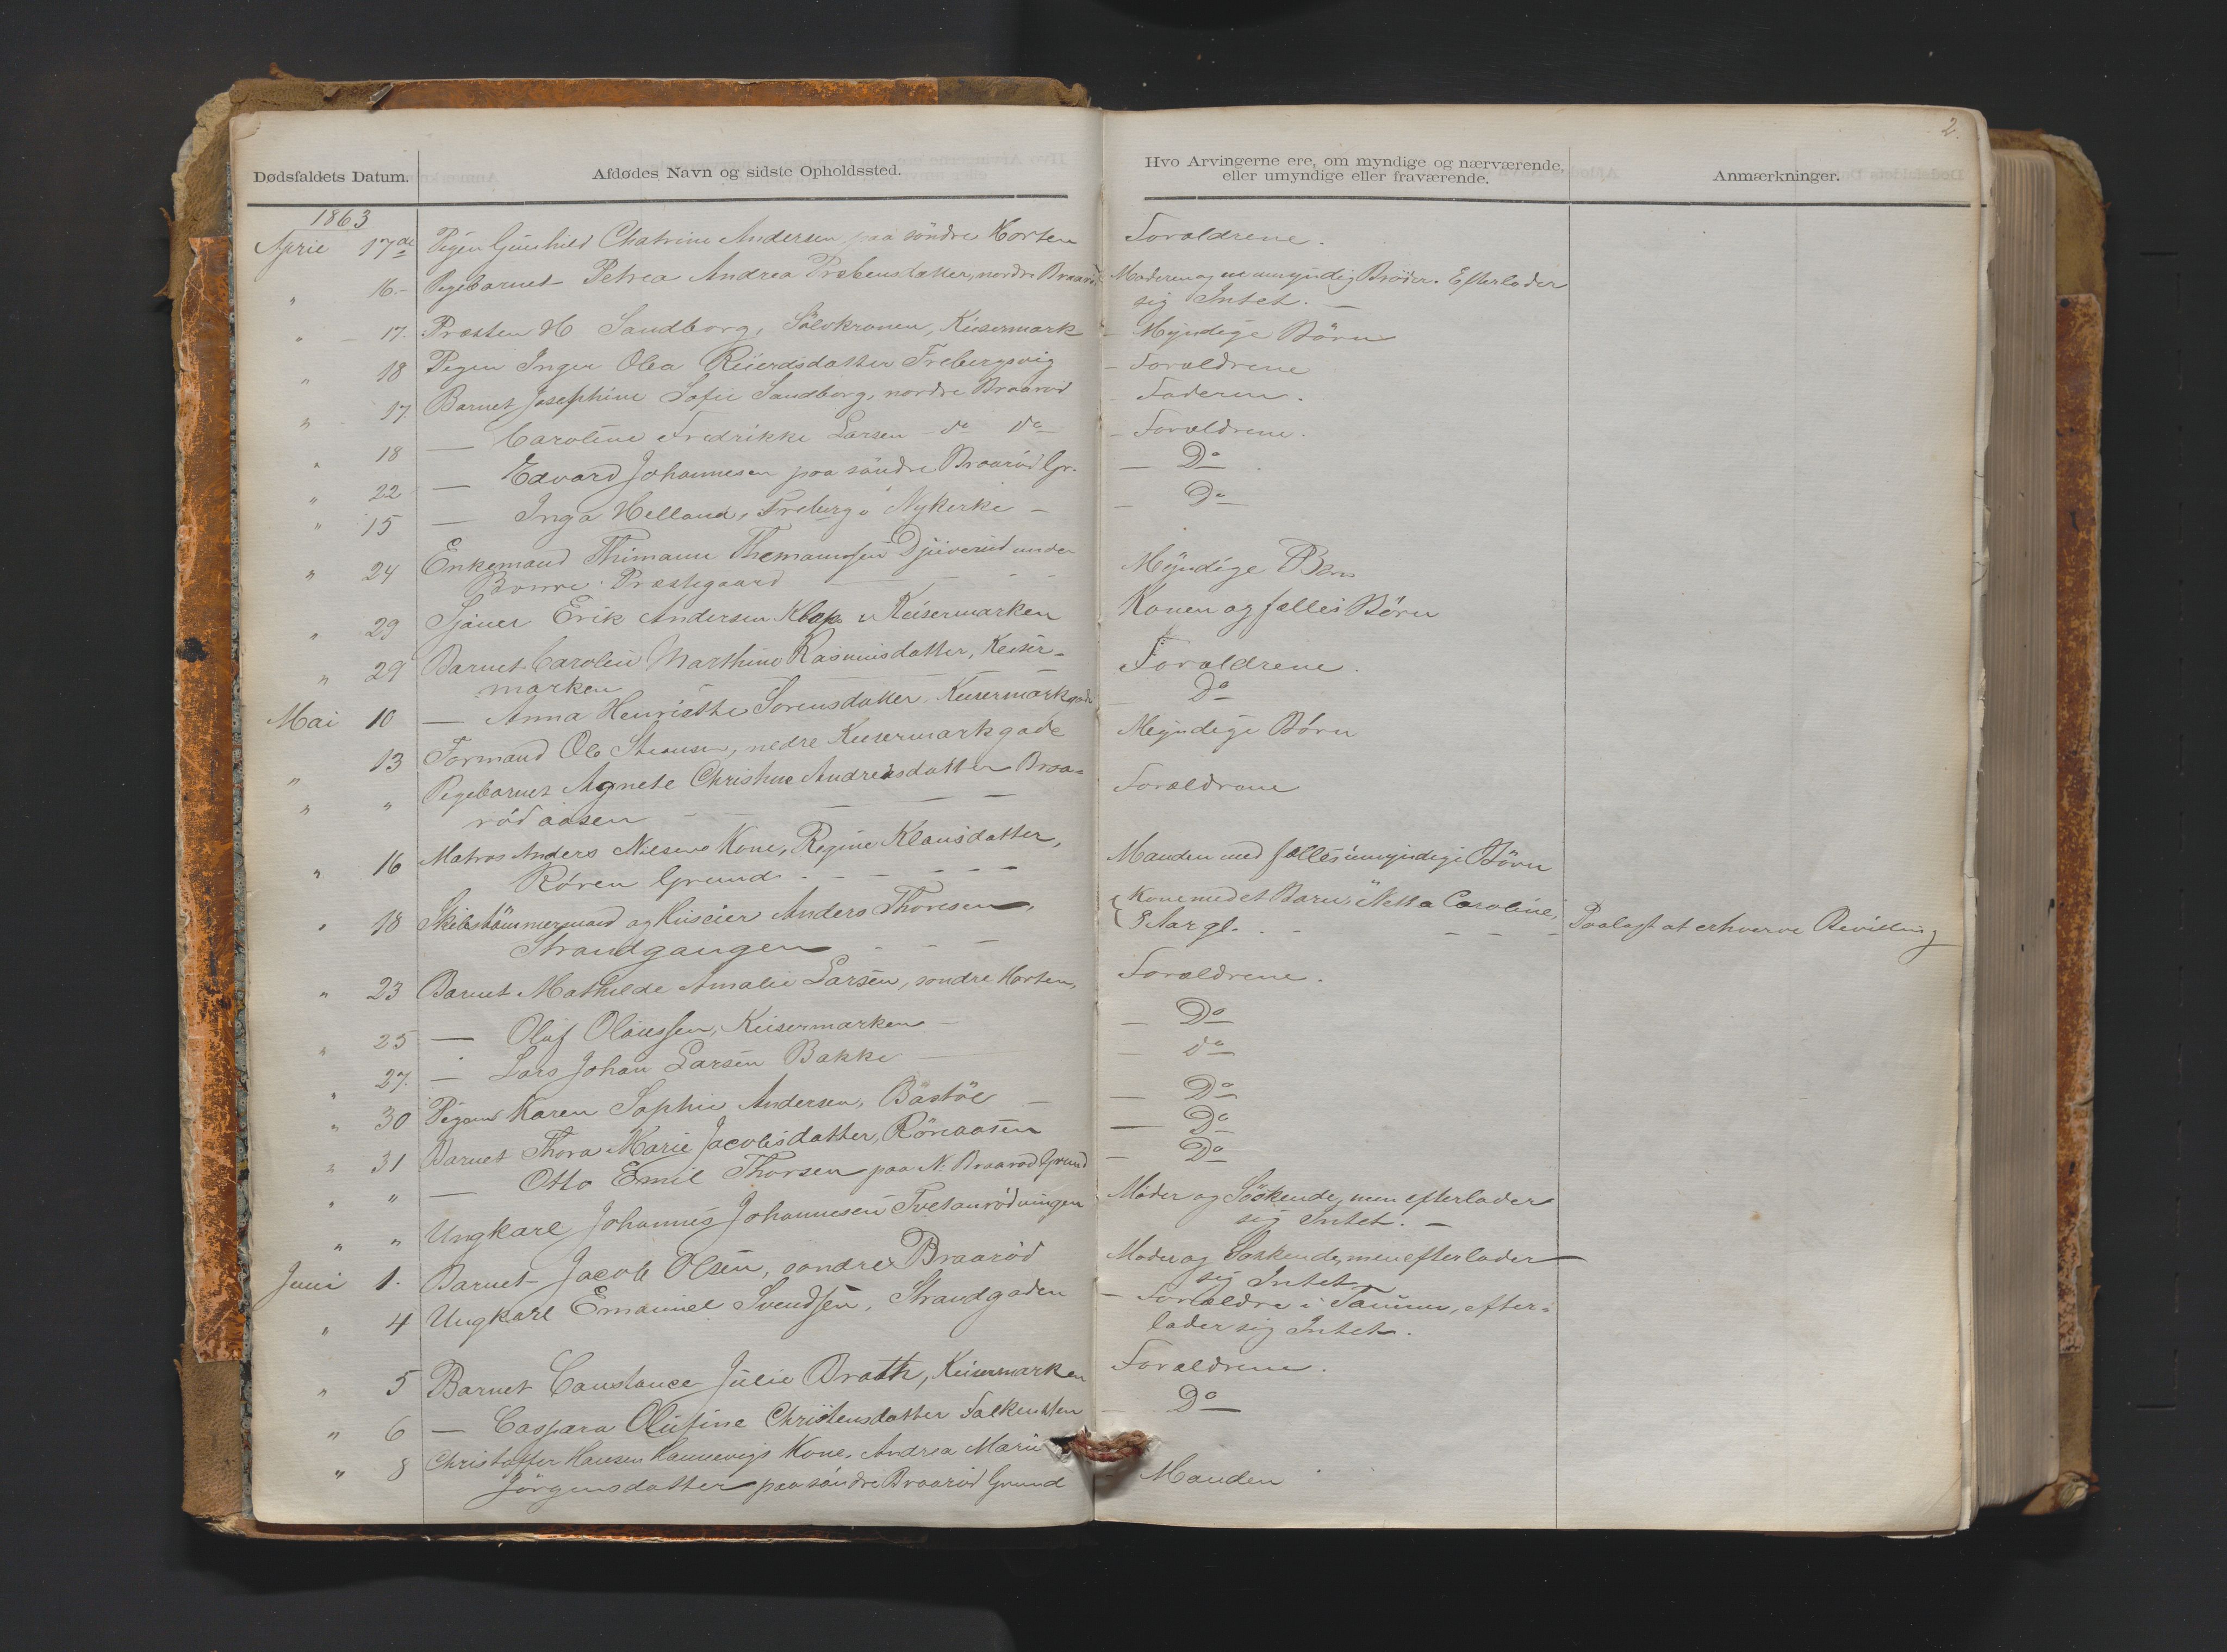 2.
Dødsfaldets Datum.
Afdødes Navn og sidste Opholdssted.
Hvo Arvingerne ere, om myndige og nærværende,
eller umyndige eller fraværende.
Anmærkninger.
1863
April 17de Pigen Gunhild Chatrine Andersen paa söndre Horten Forældrene.
" 16.- Pigebarnet Petrea Andrea Prebensdatter, nordre Braarød Moderen og en umyndig Broder. Efterlader
sig Intet. —
" - 17. Præsten H Sandborg, Sölvkronen, Keisermark - Myndige Börn
" 18 Pigen Inger Olea Reierdsdatter Frebergsvig - Forældrene
" 17 Barnet Josephine Sofie Sandborg, nordre Braarød - Faderen.
" 18 — Caroline Fredrikke Larsen - do do - Forældrene.
" 22 — Edvard Johannesen paa söndre Braarød Gr. — Do
" 15 — Inga Helland, Freberg i Nykirke - — Do
" 24 Enkemand Thimann Themannsen Djuverud under Myndige Børn
Borre Præstegaard
" 29 Sjöuer Erik Andersen Klop u Keisermarken Konen og fælles Börn
" 29 Barnet Caroline Marthine Rasmusdatter, Keiser- Forældrene.
marken
Mai 10 — Anna Henriette Sorensdatter Keisermarkgade - Do
" 13 Formand Ole Steensen, nedre Keisermarkgade Myndige Børn
" " Pigebarnet Agnete Christine Andreasdatter Braa- Forældrene
rödaasen
" 16 Matros Anders Nilsens Kone, Regine Klausdatter, Manden med fælles umyndige Börn
Rören Grund
" 18 Skibstömmermand og Huseier Anders Thoresen, Kone med et Barn, Netta Caroline, Paalagt at erhverve Bevilling
Strandgangen 8 Aar gl.
" 23 Barnet Mathilde Amalie Larsen, sondre Horten, Forældrene.
" 25 — Oluf Olaussen, Keisermarken — Do
" 27. — Lars Johan Larsen Bakke — do
" 30 Pigen Karen Sophie Andersen, Bastöe — Do
" 31 Barnet Thora Marie Jacobsdatter, Röreaasen — Do
" " — Otto Emil Thorsen paa N. Braarød Grund — Do
" " Ungkarl Johannes Johannesen Tveitanrödningen Moder og Söskende, men efterlader
sig Intet. —
Juni 1. Barnet Jacob Olsen, sondre Braaröd Moder og Söskende, men efterlader
sig Intet
" 4 Ungkarl Emanuel Svendsen, Strandgaden - Forældre i Tanum, efter-
lader sig Intet.
" 5 Barnet Constance Julie Brath, Keisermarken Forældrene.
" 6 — Caspara Olufine Christensdatter Falkensten — Do
" 8 Christoffer Hansen Hannevigs Kone, Andrea Marie
Jörgensdatter paa söndre Braaröd Grund - Manden